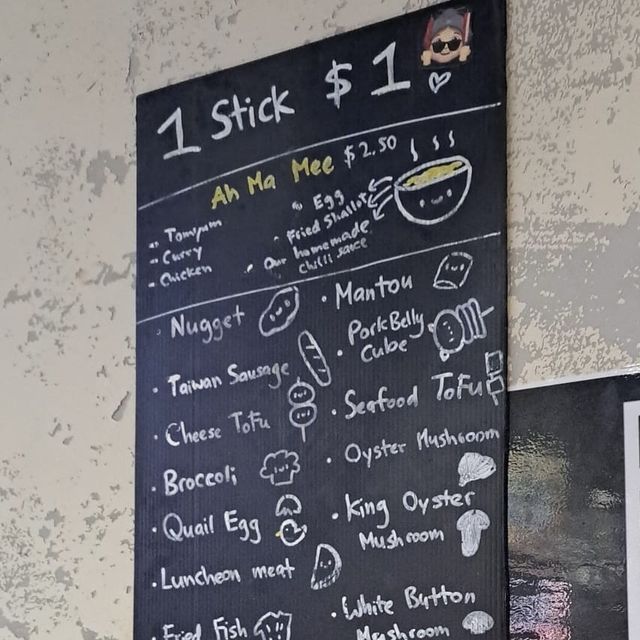 1 Stick $1
Ah Ma Mee $2.50
- Tomyum
- Curry
- Chicken
Egg
Fried Shallot
Our homemade
chilli sauce
· Nugget
· Taiwan Sausage
· Cheese Tofu
· Broccoli
· Quail Egg
· Luncheon meat
· Fried Fish
· Mantou
· Pork Belly
Cube
· Seafood Tofu
· Oyster Mushroom
· King Oyster
Mushroom
· White Button
Mushroom